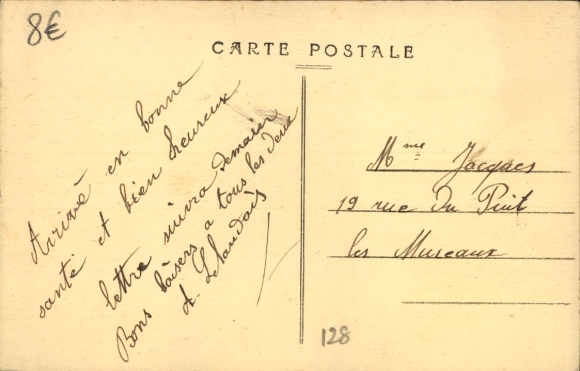 8€
CARTE POSTALE
Arrivé en bonne
santé et bien heureux
lettre suivra demain
Bons baisers a tous les deux
A. Lelandais
Mme Jacques
19 rue du Puit
les Mureaux
128